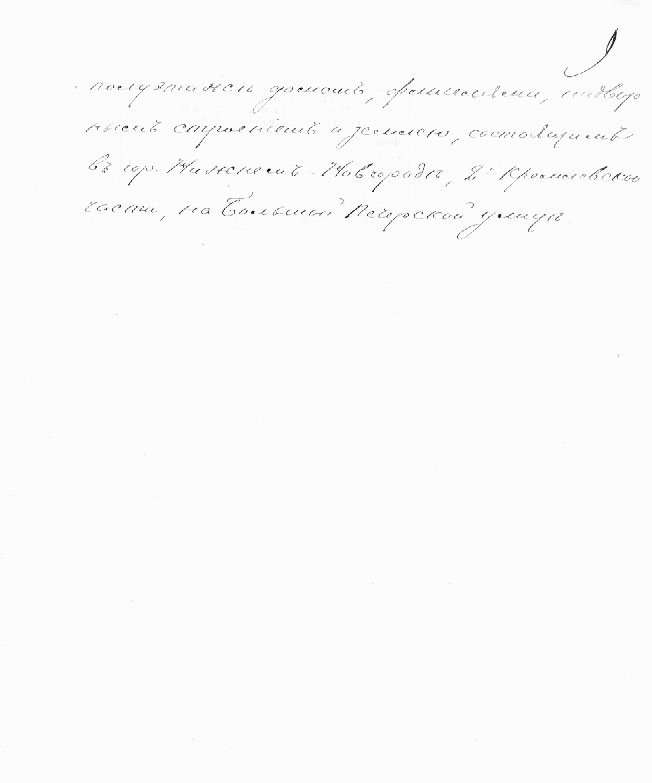 9
домомъ, флигелями, надвор
нымъ строеніемъ и землею, состоящимъ
въ гор. Нижнемъ-Новгородѣ, 2й Кремлевской
части, на Большой Печерской улицѣ.